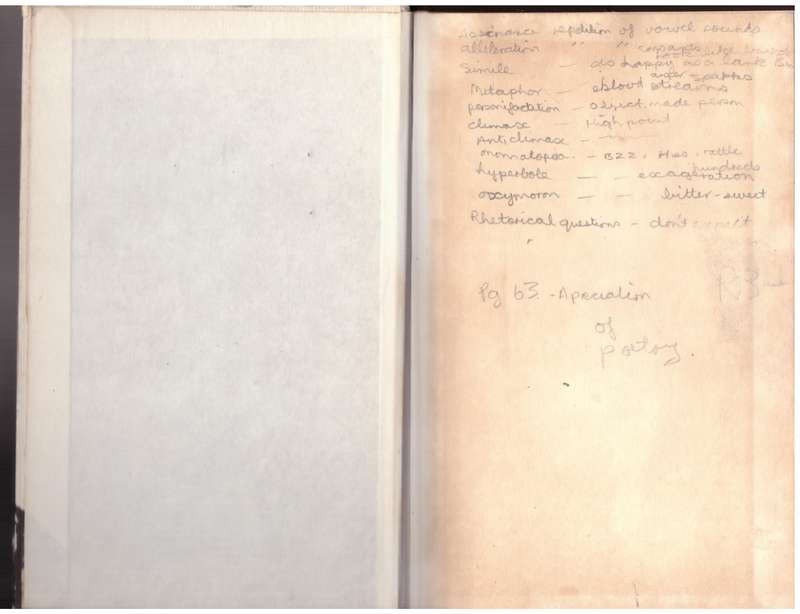 Assonance repetition of vowel sounds
alleleration " " consants
Simile - as happy as a lark
Metaphor - blood streams
personifactation - object made person
climase - High point
Anticlimase -
onnomatopoea - BZZ, Hiss, rattle
hundreds
hyperbole - - exageration
oxymoron - - bitter-sweet
Rhetorical questions - don't expect
Pg 63. - Apeciation
of
poetory.